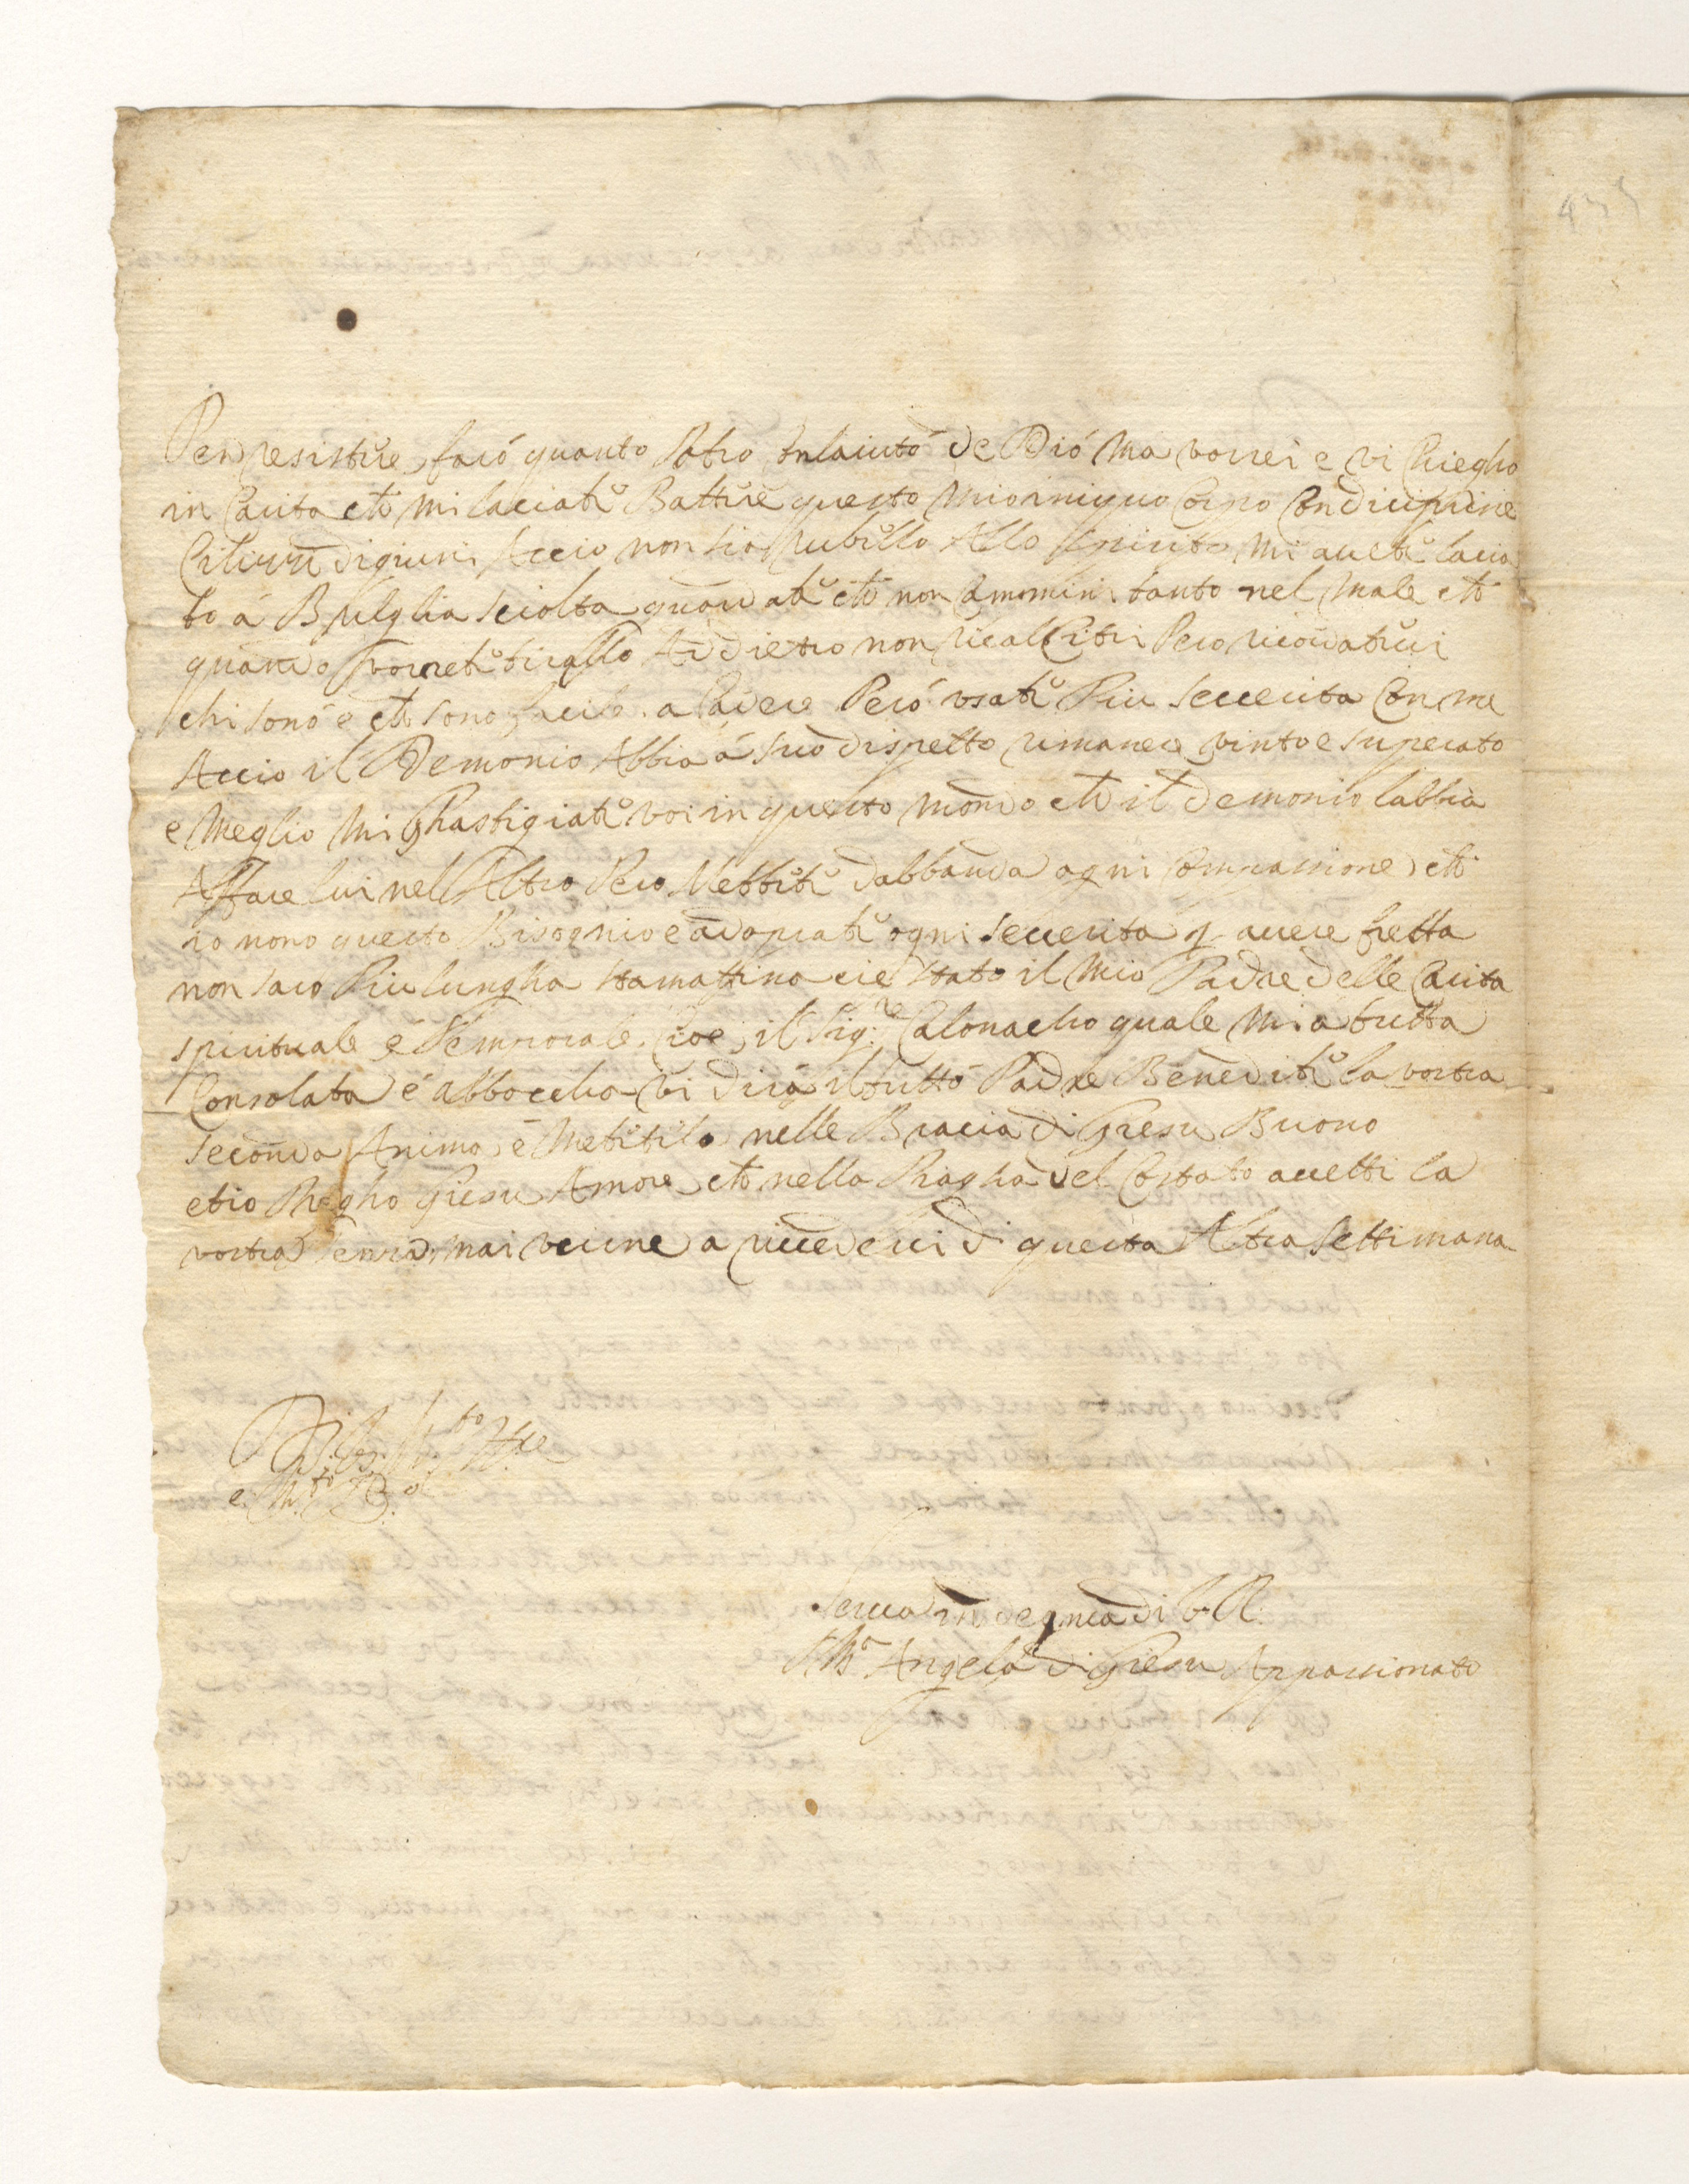 Per resistere farò quanto Potro Conlaiuto de Dió Ma vorrei e vi Priegho
in Carita che mi laciate Battere questo Mio iniquo Corpo Con dicipline
Cilizii digiuni Accio non sia Rubello Allo Spirito mi avete lacia
to á Briglia sciolta guardate che non Camini tanto nel Male che
quando vorrete tirallo Addietro non ricalCitri Pero ricordatevi
chi sonó e che sono facile a Cadere Peró usate Piu Severita Con me
Accio il Demonio Abbia á suo dispetto rimanere vinto e superato
e Meglio Mi Ghastigiate voi in questo Mondo che il Demonio labbia
Affare lui nell Altro Pero Mettete dabbanda ogni Compassione che
io nono questo Bisognio e adoprate ogni Severita p avere fretta
non saro Piu lungha stamattina cie stato il Mio Padre delle Carita
spirituale e Temporale Cioe il Sig:re Calonacho quale Mi a tutta
Consolata é abboccho vi dirá il tuttó Padre Benedite la vostra
seconda Anima e Metitila nelle Bracia di Giesu Buono
etio Pregho Giesu Amore che nella Piagha del Costato accetti la
vostra senza mai venire a rivederci di questa Altra Settimana
D. V. R. M.to R.re
e M.to R.d
Serva indegnia di V. R.
S M.a Angela di Giesu Appassionato
435